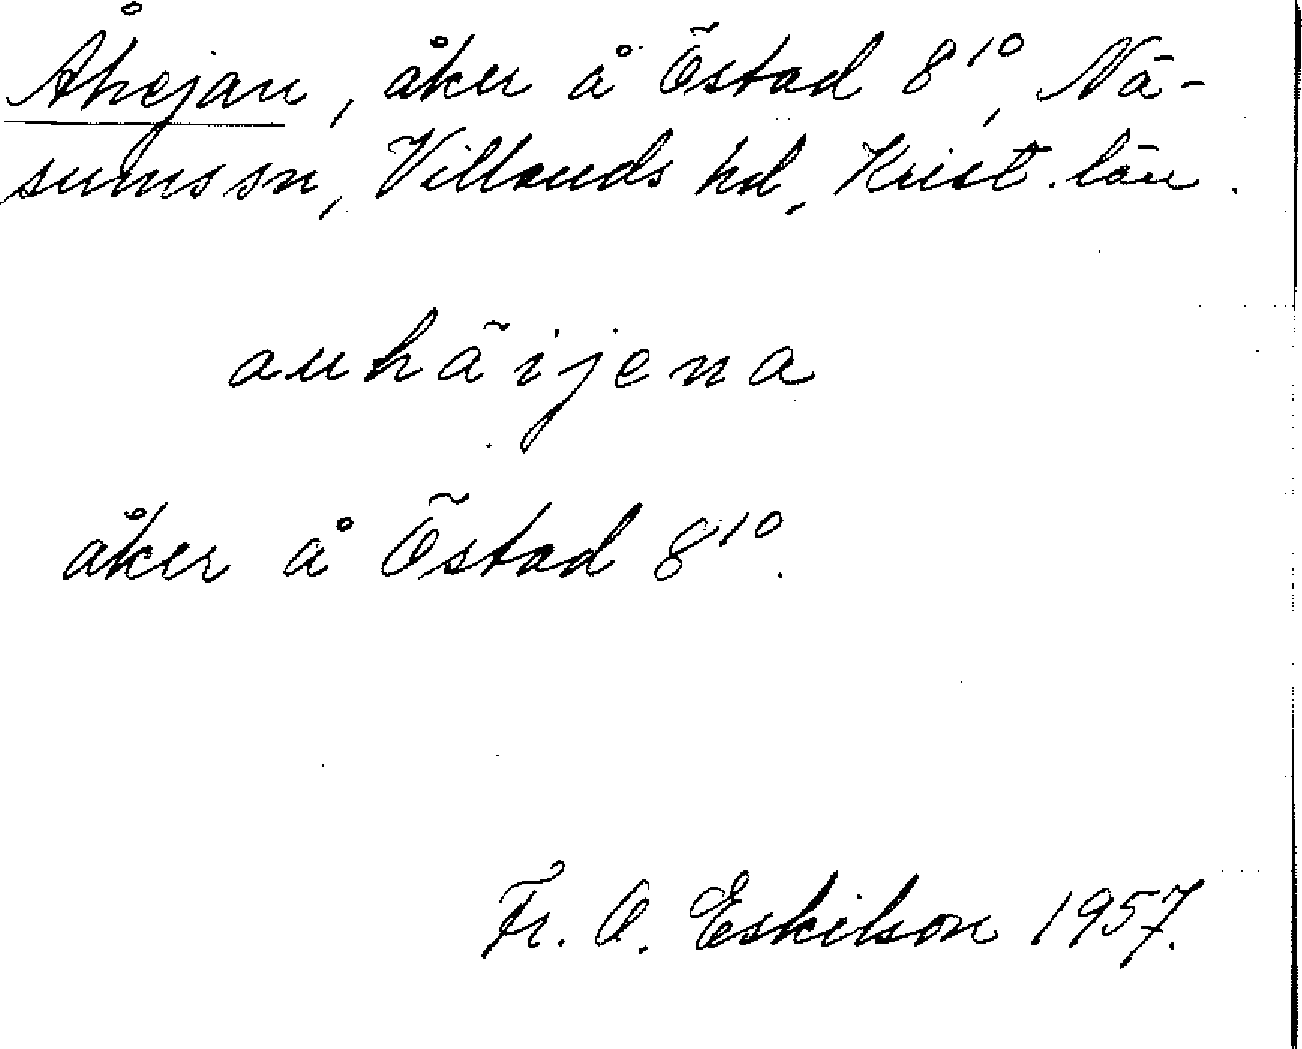 Åhejan, åker å Östad 8¹⁰, Nä-
sumssn, Villands hd, Krist. län.
auhäijena
åker å Östad 8¹⁰.
Fr. O. Eskilson 1957.